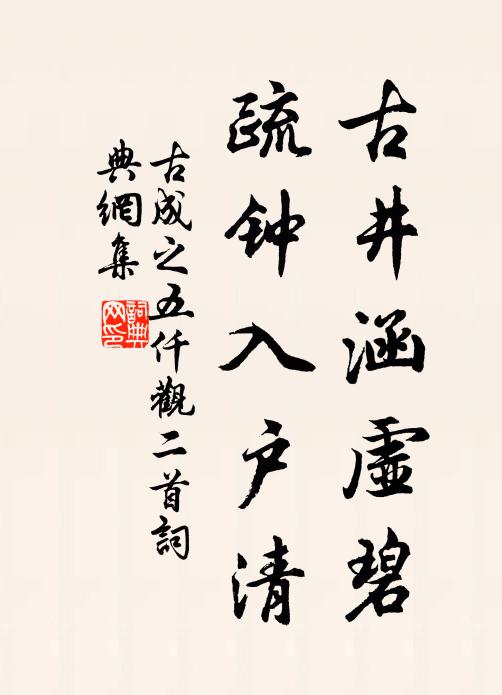 古井涵虛碧
疏钟入户清
古成之五仟觀二首詞
典網集
詞典網印